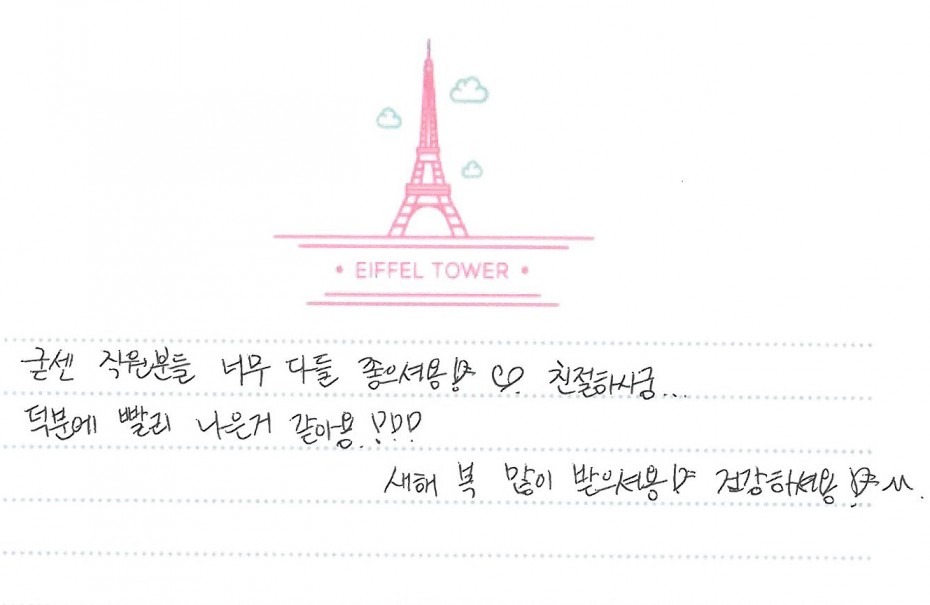 • EIFFEL TOWER •
굳센 직원분들 너무 다들 좋으셔용!! ♡ 친절하시궁...
덕분에 빨리 나은거 같아용!!!
새해 복 많이 받으셔용!! 건강하셔용!! ^^.